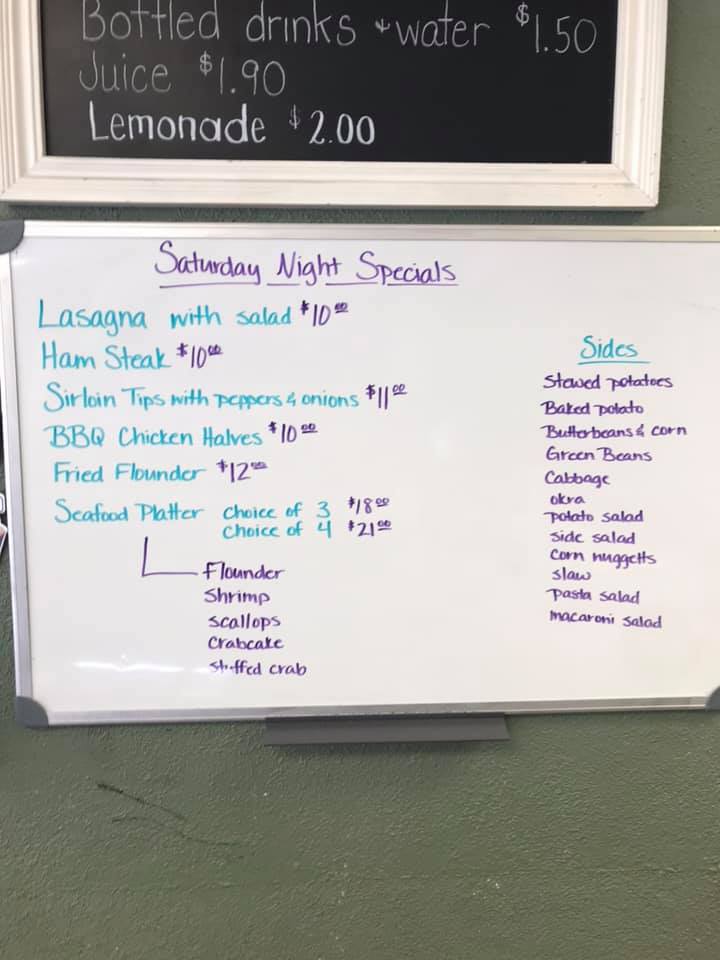 Bottled drinks & water $1.50
Juice $1.90
Lemonade $2.00
Saturday Night Specials
Lasagna with salad $10.00
Ham Steak $10.00
Sirloin Tips with peppers & onions $11.00
BBQ Chicken Halves $10.00
Fried Flounder $12.00
Seafood Platter choice of 3 $18.00
choice of 4 $21.00
Flounder
Shrimp
Scallops
Crabcake
Stuffed crab
Sides
Stewed potatoes
Baked potato
Butterbeans & corn
Green Beans
Cabbage
okra
potato salad
side salad
corn nuggetts
slaw
pasta salad
macaroni salad